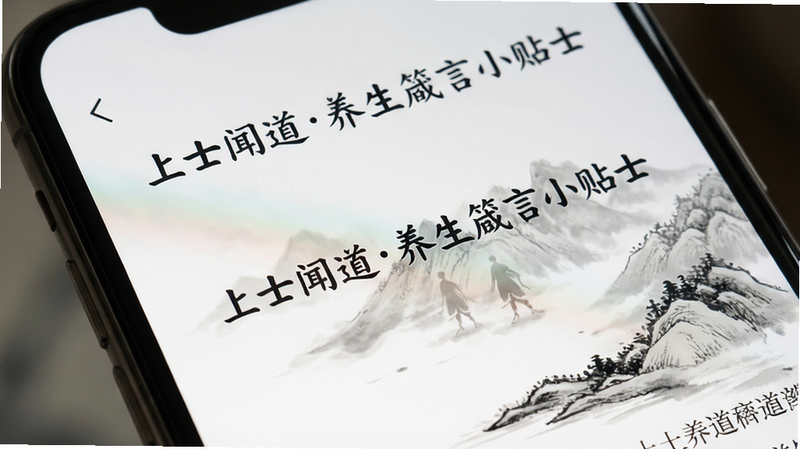 上士闻道·养生箴言小贴士
上士闻道·养生箴言小贴士
上士养道